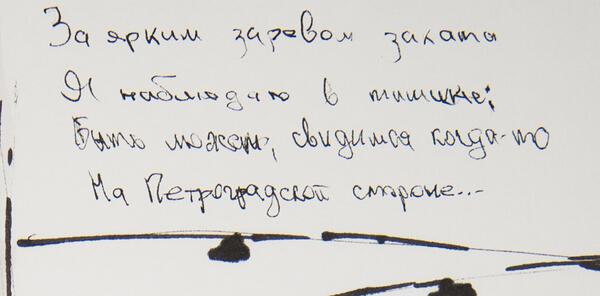 За ярким заревом заката
Я наблюдаю в тишине;
Быть может, свидимся когда-то
На Петроградской стороне...